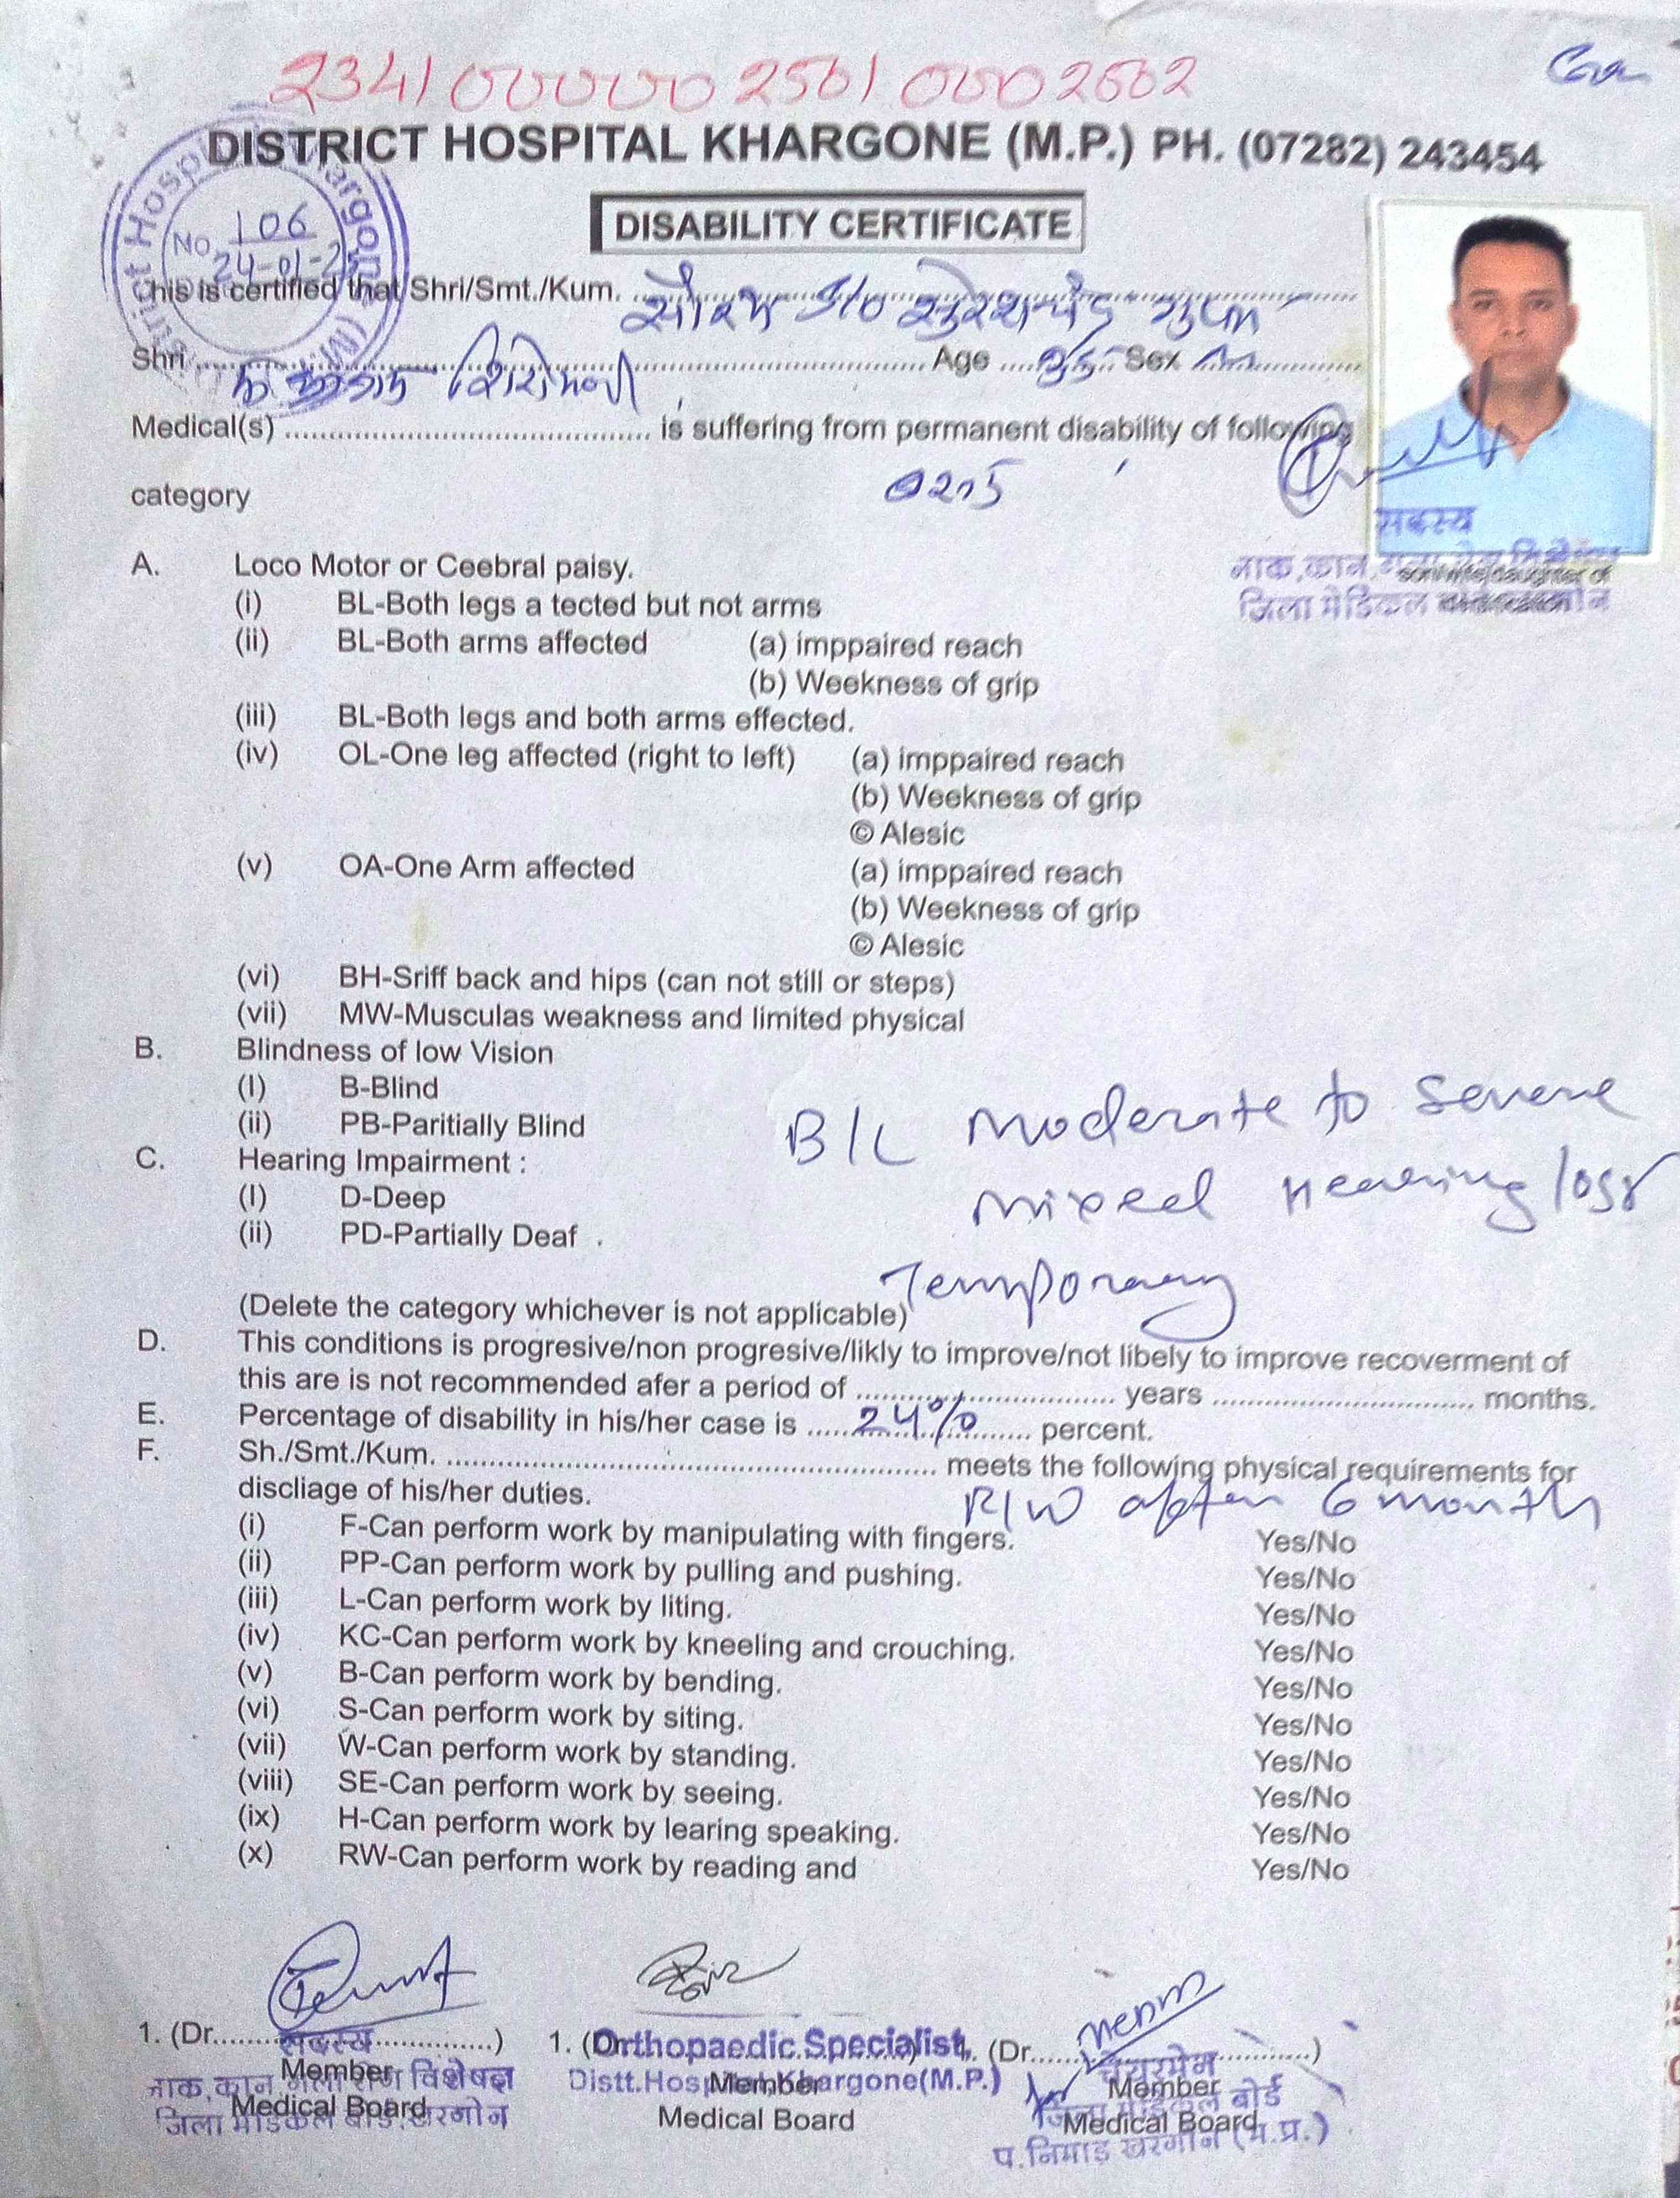 23410000025010002502
DISTRICT HOSPITAL KHARGONE (M.P.) PH. (07282) 243454
DISABILITY CERTIFICATE
No. 106
24-01-2
This is certified that Shri/Smt./Kum. सौरभ S/o सुरेशचंद्र गुप्ता
Shri Age Sex
Medical(s) is suffering from permanent disability of following
category
सदस्य
नाक,कान,गला
son/wife/daughter of
जिला मेडिकल
A. Loco Motor or Ceebral paisy.
(i) BL-Both legs a tected but not arms
(ii) BL-Both arms affected (a) imppaired reach
(b) Weekness of grip
(iii) BL-Both legs and both arms effected.
(iv) OL-One leg affected (right to left) (a) imppaired reach
(b) Weekness of grip
© Alesic
(v) OA-One Arm affected (a) imppaired reach
(b) Weekness of grip
© Alesic
(vi) BH-Sriff back and hips (can not still or steps)
(vii) MW-Musculas weakness and limited physical
B. Blindness of low Vision
(I) B-Blind
(ii) PB-Paritially Blind
B/L Moderate to Severe
C. Hearing Impairment :
(I) D-Deep
mixed Hearing loss
(ii) PD-Partially Deaf .
Temporary
(Delete the category whichever is not applicable)
D. This conditions is progresive/non progresive/likly to improve/not libely to improve recoverment of
this are is not recommended afer a period of ........ years ........ months.
E. Percentage of disability in his/her case is 24% percent.
F. Sh./Smt./Kum. ........ meets the following physical requirements for
discliage of his/her duties.
R/W after 6 month
(i) F-Can perform work by manipulating with fingers. Yes/No
(ii) PP-Can perform work by pulling and pushing. Yes/No
(iii) L-Can perform work by liting. Yes/No
(iv) KC-Can perform work by kneeling and crouching. Yes/No
(v) B-Can perform work by bending. Yes/No
(vi) S-Can perform work by siting. Yes/No
(vii) W-Can perform work by standing. Yes/No
(viii) SE-Can perform work by seeing. Yes/No
(ix) H-Can perform work by learing speaking. Yes/No
(x) RW-Can perform work by reading and Yes/No
1. (Dr........) 1. (Orthopaedic Specialist, (Dr........)
सदस्य चेयरमेन
Member Distt.Hospital Khargone(M.P.) Member Member
नाक,कान गला रोग विशेषज्ञ जिला मेडिकल बोर्ड
Medical Board Medical Board for Medical Board
जिला मेडिकल बोर्ड,खरगोन प.निमाड़ खरगोन (म.प्र.)